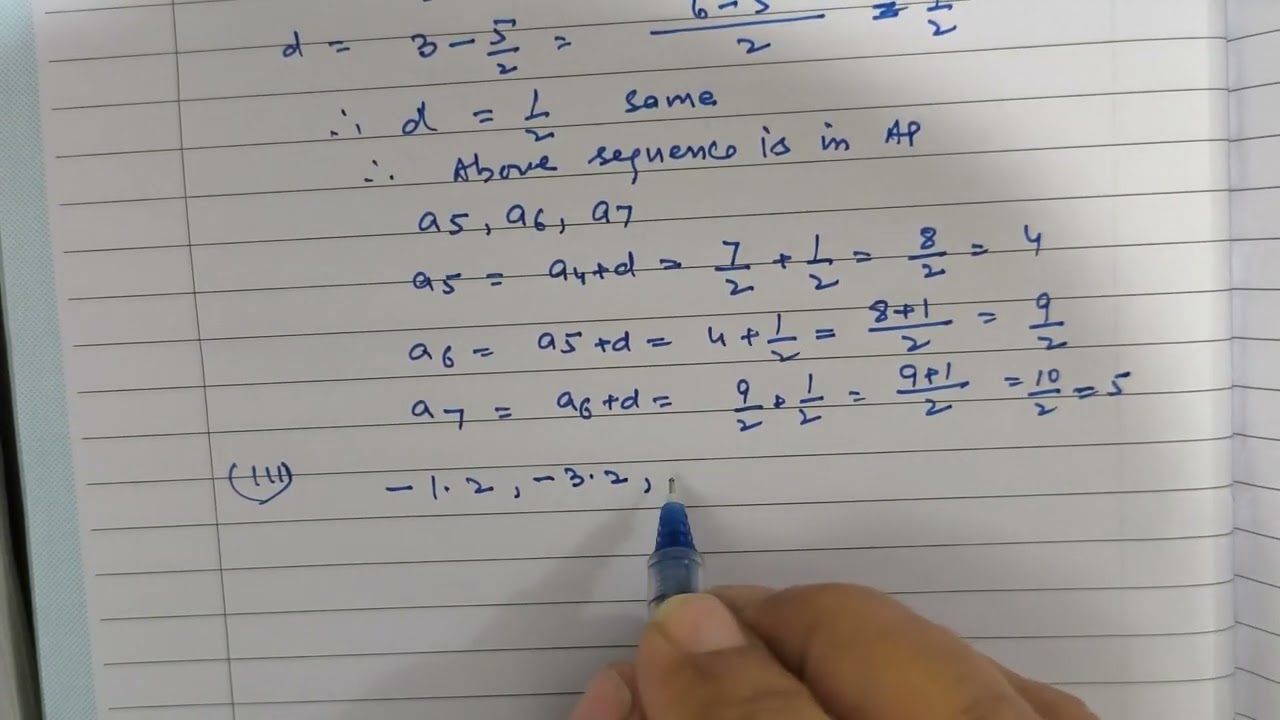 d = 3 - 5/2 = 6-5/2 = 1/2
∴ d = 1/2 same
∴ Above sequence is in AP
a5, a6, a7
a5 = a4+d = 7/2 + 1/2 = 8/2 = 4
a6 = a5+d = 4+1/2 = 8+1/2 = 9/2
a7 = a6+d = 9/2 + 1/2 = 9+1/2 = 10/2 = 5
(III) -1.2, -3.2,